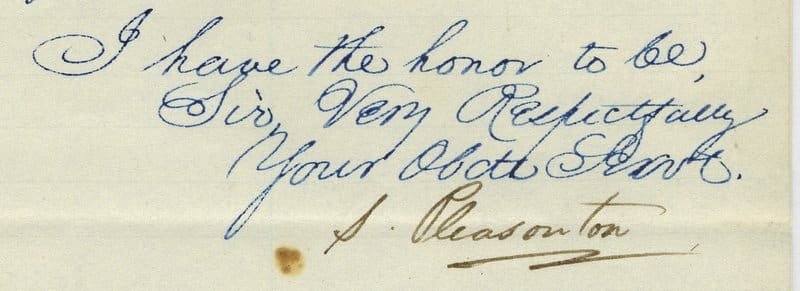 I have the honor to be,
Sir, Very Respectfully
Your Obdt Servt.
S. Pleasonton